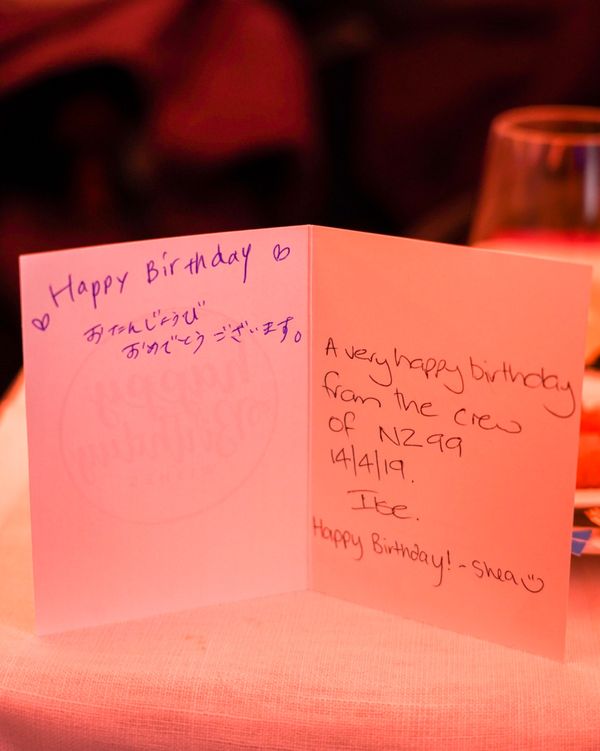 Happy Birthday
おたんじょうび
おめでとうございます。
A very happy birthday
from the crew
of NZ99
14/4/19.
Happy Birthday! - Shea
happy
Birthday